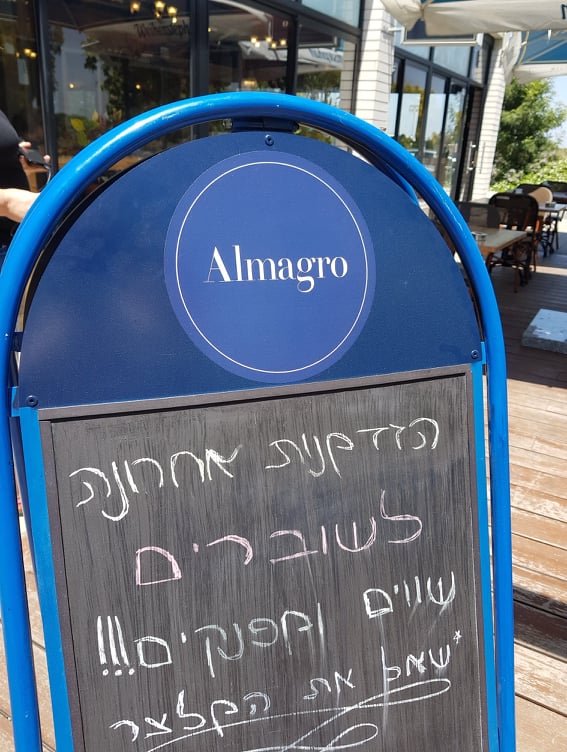 Almagro
הזדמנות אחרונה
לשוברים
שווים ומפנקים!!!
*שאל את המלצר